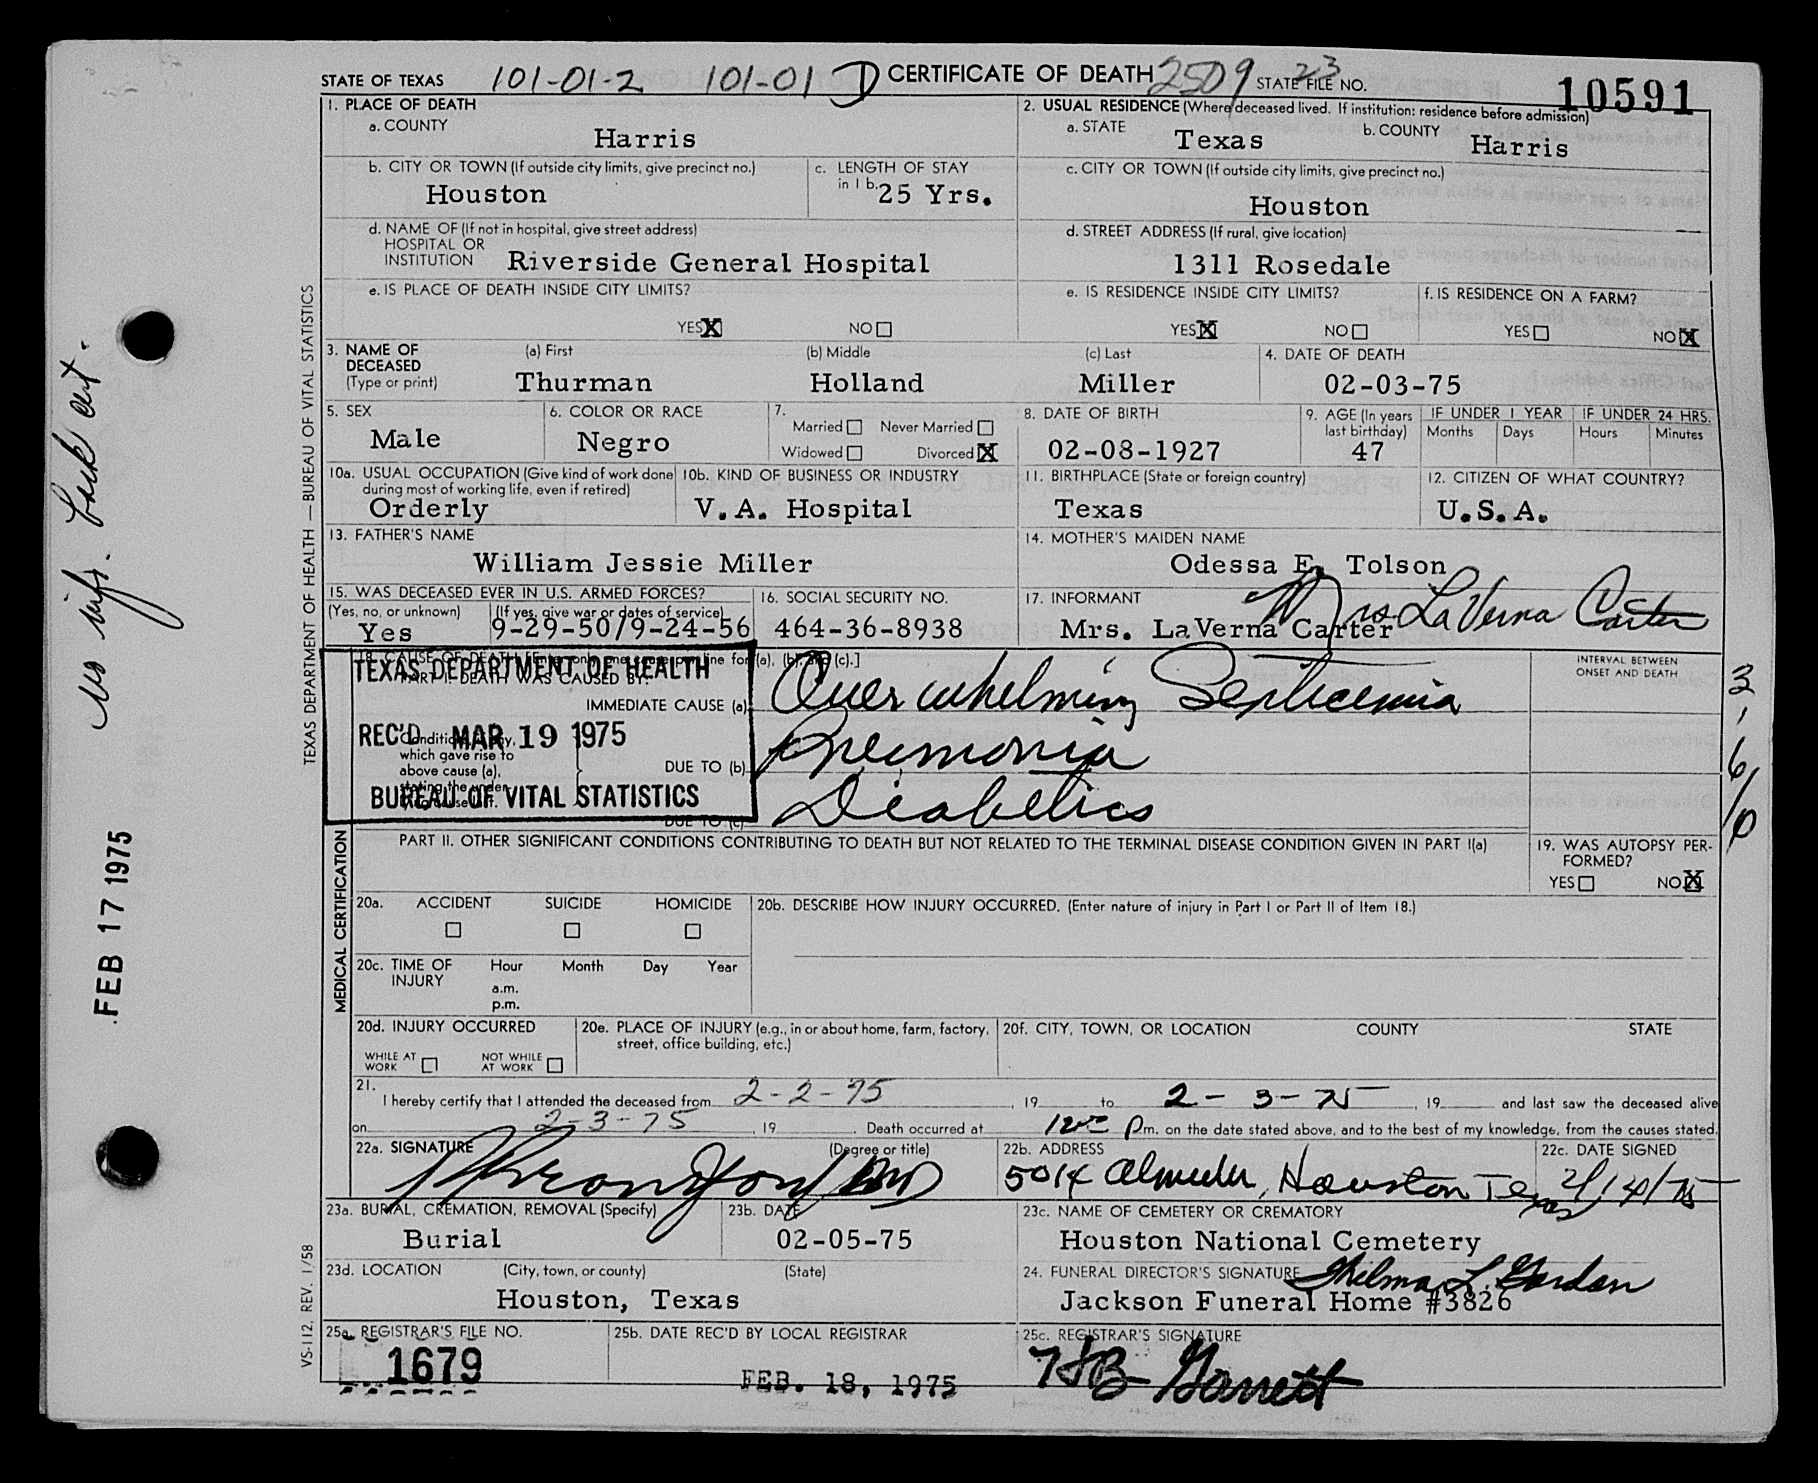 STATE OF TEXAS 101-01-2 101-01 D CERTIFICATE OF DEATH 2509 STATE FILE NO. 23 10591
1. PLACE OF DEATH
a. COUNTY
Harris
2. USUAL RESIDENCE (Where deceased lived. If institution: residence before admission)
a. STATE
Texas
b. COUNTY
Harris
b. CITY OR TOWN (If outside city limits, give precinct no.)
Houston
c. LENGTH OF STAY
in 1 b.
25 Yrs.
c. CITY OR TOWN (If outside city limits, give precinct no.)
Houston
d. NAME OF (If not in hospital, give street address)
HOSPITAL OR
INSTITUTION
Riverside General Hospital
d. STREET ADDRESS (If rural, give location)
1311 Rosedale
e. IS PLACE OF DEATH INSIDE CITY LIMITS?
YES X NO
e. IS RESIDENCE INSIDE CITY LIMITS?
YES X NO
f. IS RESIDENCE ON A FARM?
YES NO X
3. NAME OF
DECEASED
(Type or print)
(a) First
Thurman
(b) Middle
Holland
(c) Last
Miller
4. DATE OF DEATH
02-03-75
5. SEX
Male
6. COLOR OR RACE
Negro
7.
Married Never Married
Widowed Divorced X
8. DATE OF BIRTH
02-08-1927
9. AGE (In years
last birthday)
47
IF UNDER 1 YEAR
Months Days
IF UNDER 24 HRS.
Hours Minutes
10a. USUAL OCCUPATION (Give kind of work done
during most of working life, even if retired)
Orderly
10b. KIND OF BUSINESS OR INDUSTRY
V.A. Hospital
11. BIRTHPLACE (State or foreign country)
Texas
12. CITIZEN OF WHAT COUNTRY?
U.S.A.
13. FATHER'S NAME
William Jessie Miller
14. MOTHER'S MAIDEN NAME
Odessa E. Tolson
15. WAS DECEASED EVER IN U.S. ARMED FORCES?
(Yes, no, or unknown)
Yes
(If yes, give war or dates of service)
9-29-50/9-24-56
16. SOCIAL SECURITY NO.
464-36-8938
17. INFORMANT
Mrs. LaVerna Carter
Mrs LaVerna Carter
18. CAUSE OF DEATH [Enter only one cause per line for (a), (b), and (c).]
PART I. DEATH WAS CAUSED BY:
IMMEDIATE CAUSE (a)
Overwhelming Septicemia
INTERVAL BETWEEN
ONSET AND DEATH
TEXAS DEPARTMENT OF HEALTH
REC'D MAR 19 1975
BUREAU OF VITAL STATISTICS
Conditions, if any,
which gave rise to
above cause (a),
stating the under-
lying cause last.
DUE TO (b)
Pneumonia
DUE TO (c)
Diabetics
PART II. OTHER SIGNIFICANT CONDITIONS CONTRIBUTING TO DEATH BUT NOT RELATED TO THE TERMINAL DISEASE CONDITION GIVEN IN PART I(a)
19. WAS AUTOPSY PER-
FORMED?
YES NO X
20a. ACCIDENT SUICIDE HOMICIDE
20b. DESCRIBE HOW INJURY OCCURRED. (Enter nature of injury in Part I or Part II of Item 18.)
20c. TIME OF
INJURY
Hour Month Day Year
a.m.
p.m.
20d. INJURY OCCURRED
WHILE AT
WORK
NOT WHILE
AT WORK
20e. PLACE OF INJURY (e.g., in or about home, farm, factory,
street, office building, etc.)
20f. CITY, TOWN, OR LOCATION COUNTY STATE
21.
I hereby certify that I attended the deceased from 2-2-75, 19 to 2-3-75, 19 and last saw the deceased alive
on 2-3-75, 19. Death occurred at 12:00 p m. on the date stated above, and to the best of my knowledge, from the causes stated.
22a. SIGNATURE (Degree or title)
MD
22b. ADDRESS
5014 Almeda, Houston Texas
22c. DATE SIGNED
2/14/75
23a. BURIAL, CREMATION, REMOVAL (Specify)
Burial
23b. DATE
02-05-75
23c. NAME OF CEMETERY OR CREMATORY
Houston National Cemetery
23d. LOCATION (City, town, or county) (State)
Houston, Texas
24. FUNERAL DIRECTOR'S SIGNATURE
Thelma L. Gordon
Jackson Funeral Home #3826
25a. REGISTRAR'S FILE NO.
1679
25b. DATE REC'D BY LOCAL REGISTRAR
FEB. 18, 1975
25c. REGISTRAR'S SIGNATURE
Garrett
TEXAS DEPARTMENT OF HEALTH — BUREAU OF VITAL STATISTICS
MEDICAL CERTIFICATION
VS-112, REV. 1/58
no info. back cert.
FEB 17 1975